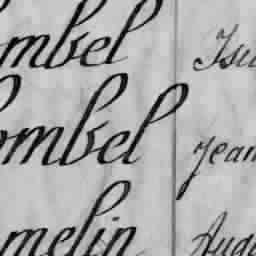 mbel Isi
ombel Jean
melin Augu